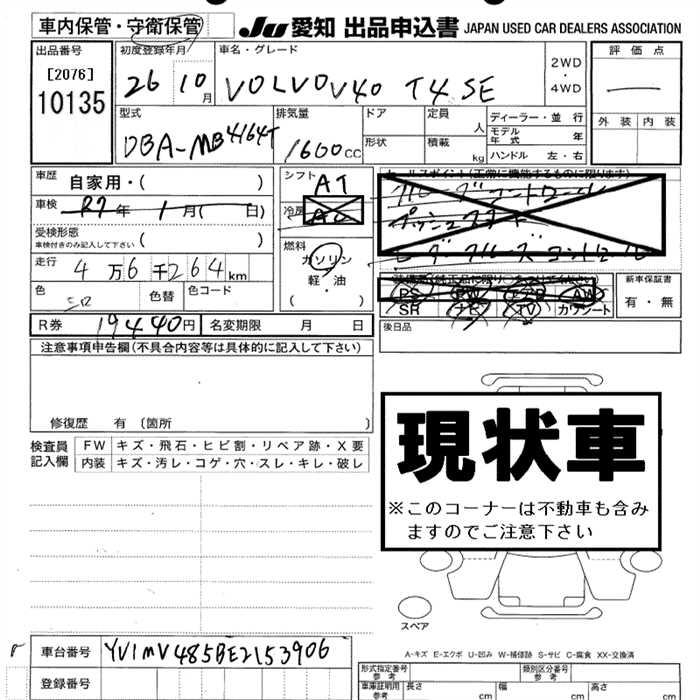 車内保管・守衛保管
JU 愛知 出品申込書 JAPAN USED CAR DEALERS ASSOCIATION
出品番号 初度登録年月 車名・グレード 評価点
[2076]
10135
26 10月 VOLVO V40 T4 SE
2WD
・
4WD
型式 排気量 ドア 定員 人 ディーラー・並行
外装 内装
DBA-MB4164T 1600cc
形状 積載 kg
モデル年式 年
ハンドル 左・右
車歴 自家用・( )
シフト AT
車検 R7年 1月( 日)
冷房 AC
セールスポイント(正常に機能するものに限ります)
受検形態
車検付きのみ記入して下さい ( )
燃料 ガソリン
軽・油
( )
走行 4万6千264km
色 色替 色コード
PS PW エアB AW
SR ナビ TV カワシート
新車保証書
有・無
R券 19440円 名変期限 月 日
後日品
注意事項申告欄(不具合内容等は具体的に記入して下さい)
修復歴 有 (箇所 )
現状車
※このコーナーは不動車も含み
ますのでご注意下さい
検査員
記入欄
FW キズ・飛石・ヒビ割・リペア跡・X要
内装 キズ・汚レ・コゲ・穴・スレ・キレ・破レ
スペア
車台番号 YV1MV485BE2153906
A-キズ E-エクボ U-凹み W-補修跡 S-サビ C-腐食 XX-交換済
登録番号
形式指定番号 参考 類別区分番号 参考
車庫証明用 参考 長さ cm 幅 cm 高さ cm